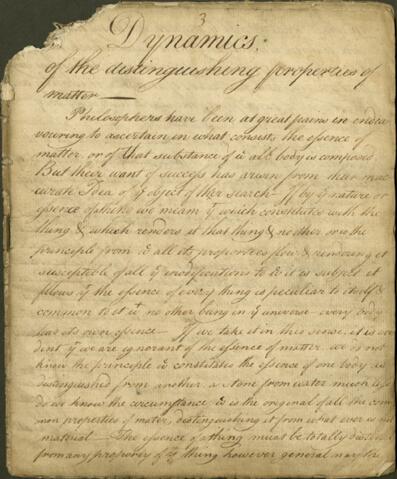 3
Dynamics.
of the distinguishing properties of
matter
Philosophers have been at great pains in endea
vouring to ascertain in what consists the essence of
matter, or of that substance of all body is composed
But their want of success has arisen from their inac
curate Idea of y object of their search — If by y nature or
essence of thing we mean y which constitutes with the
thing & which renders it that thing & no other or is the
principle from all its properties flow & rendering it
susceptible of all y modifications to it is subject it
follows y the essence of every thing is peculiar to itself &
common to it no other being in y universe every body
has its own essence — If we take it in this sense, it is evi
dent y we are ignorant of the essence of matter, we do not
know the principle constitutes the essence of one body as
distinguished from another, a stone from water much less
do we know the circumstance is the original of all the com
mon properties of matter, distinguishing it from what ever is not
material — The essence of a thing must be totally
from any property of y thing however general may